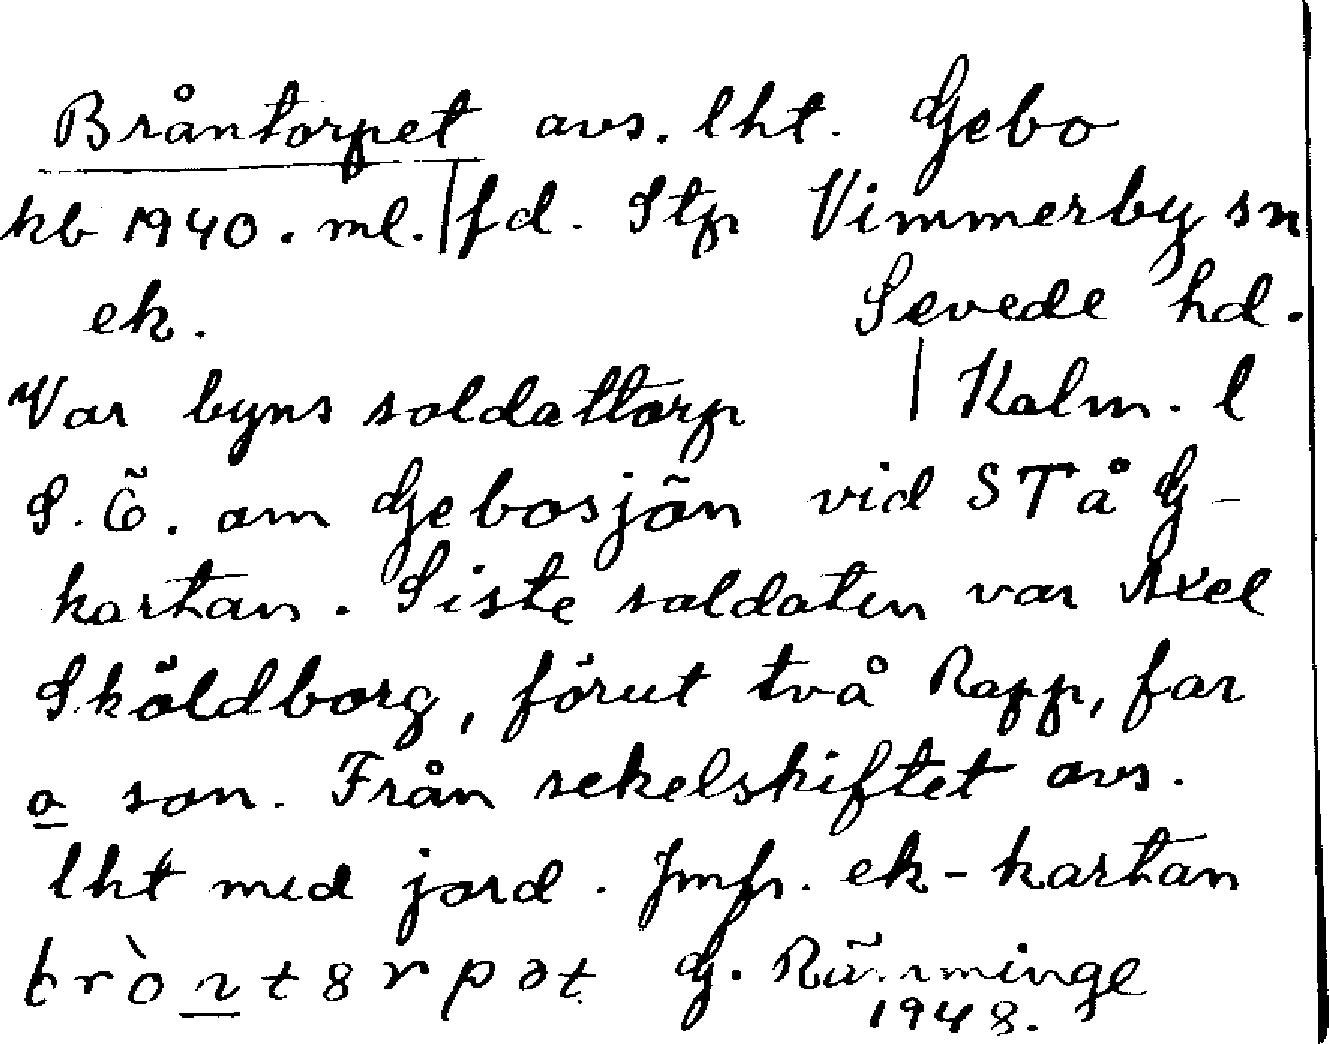 Bråntorpet avs. lht. Gebo
kb 1940. ml. | fd. Stp Vimmerby sn
ek. Sevede hd.
Var byns soldattorp | Kalm. l
S. Ö. om Gebosjön vid ST å G-
kartan. Siste soldaten var Axel
Sköldborg, förut två Rapp, far
o son. Från sekelskiftet avs.
lht med jord. Jmfr. ek-kartan
G. Ränninge
1948.